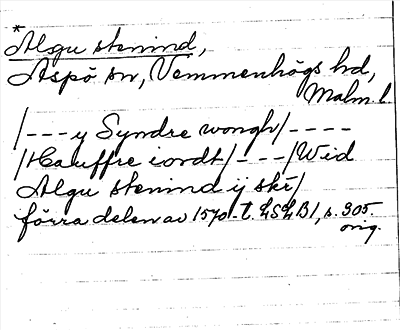 *
Algu stenind,
Aspö sn, Vemmenhögs hd,
Malm. l.
/---y Syndre wongh/----
/Hauffre iordt/---/Wid
Algu stenind ij skr/
förra delen av 1570-t. LSLB1, s. 305.
orig.